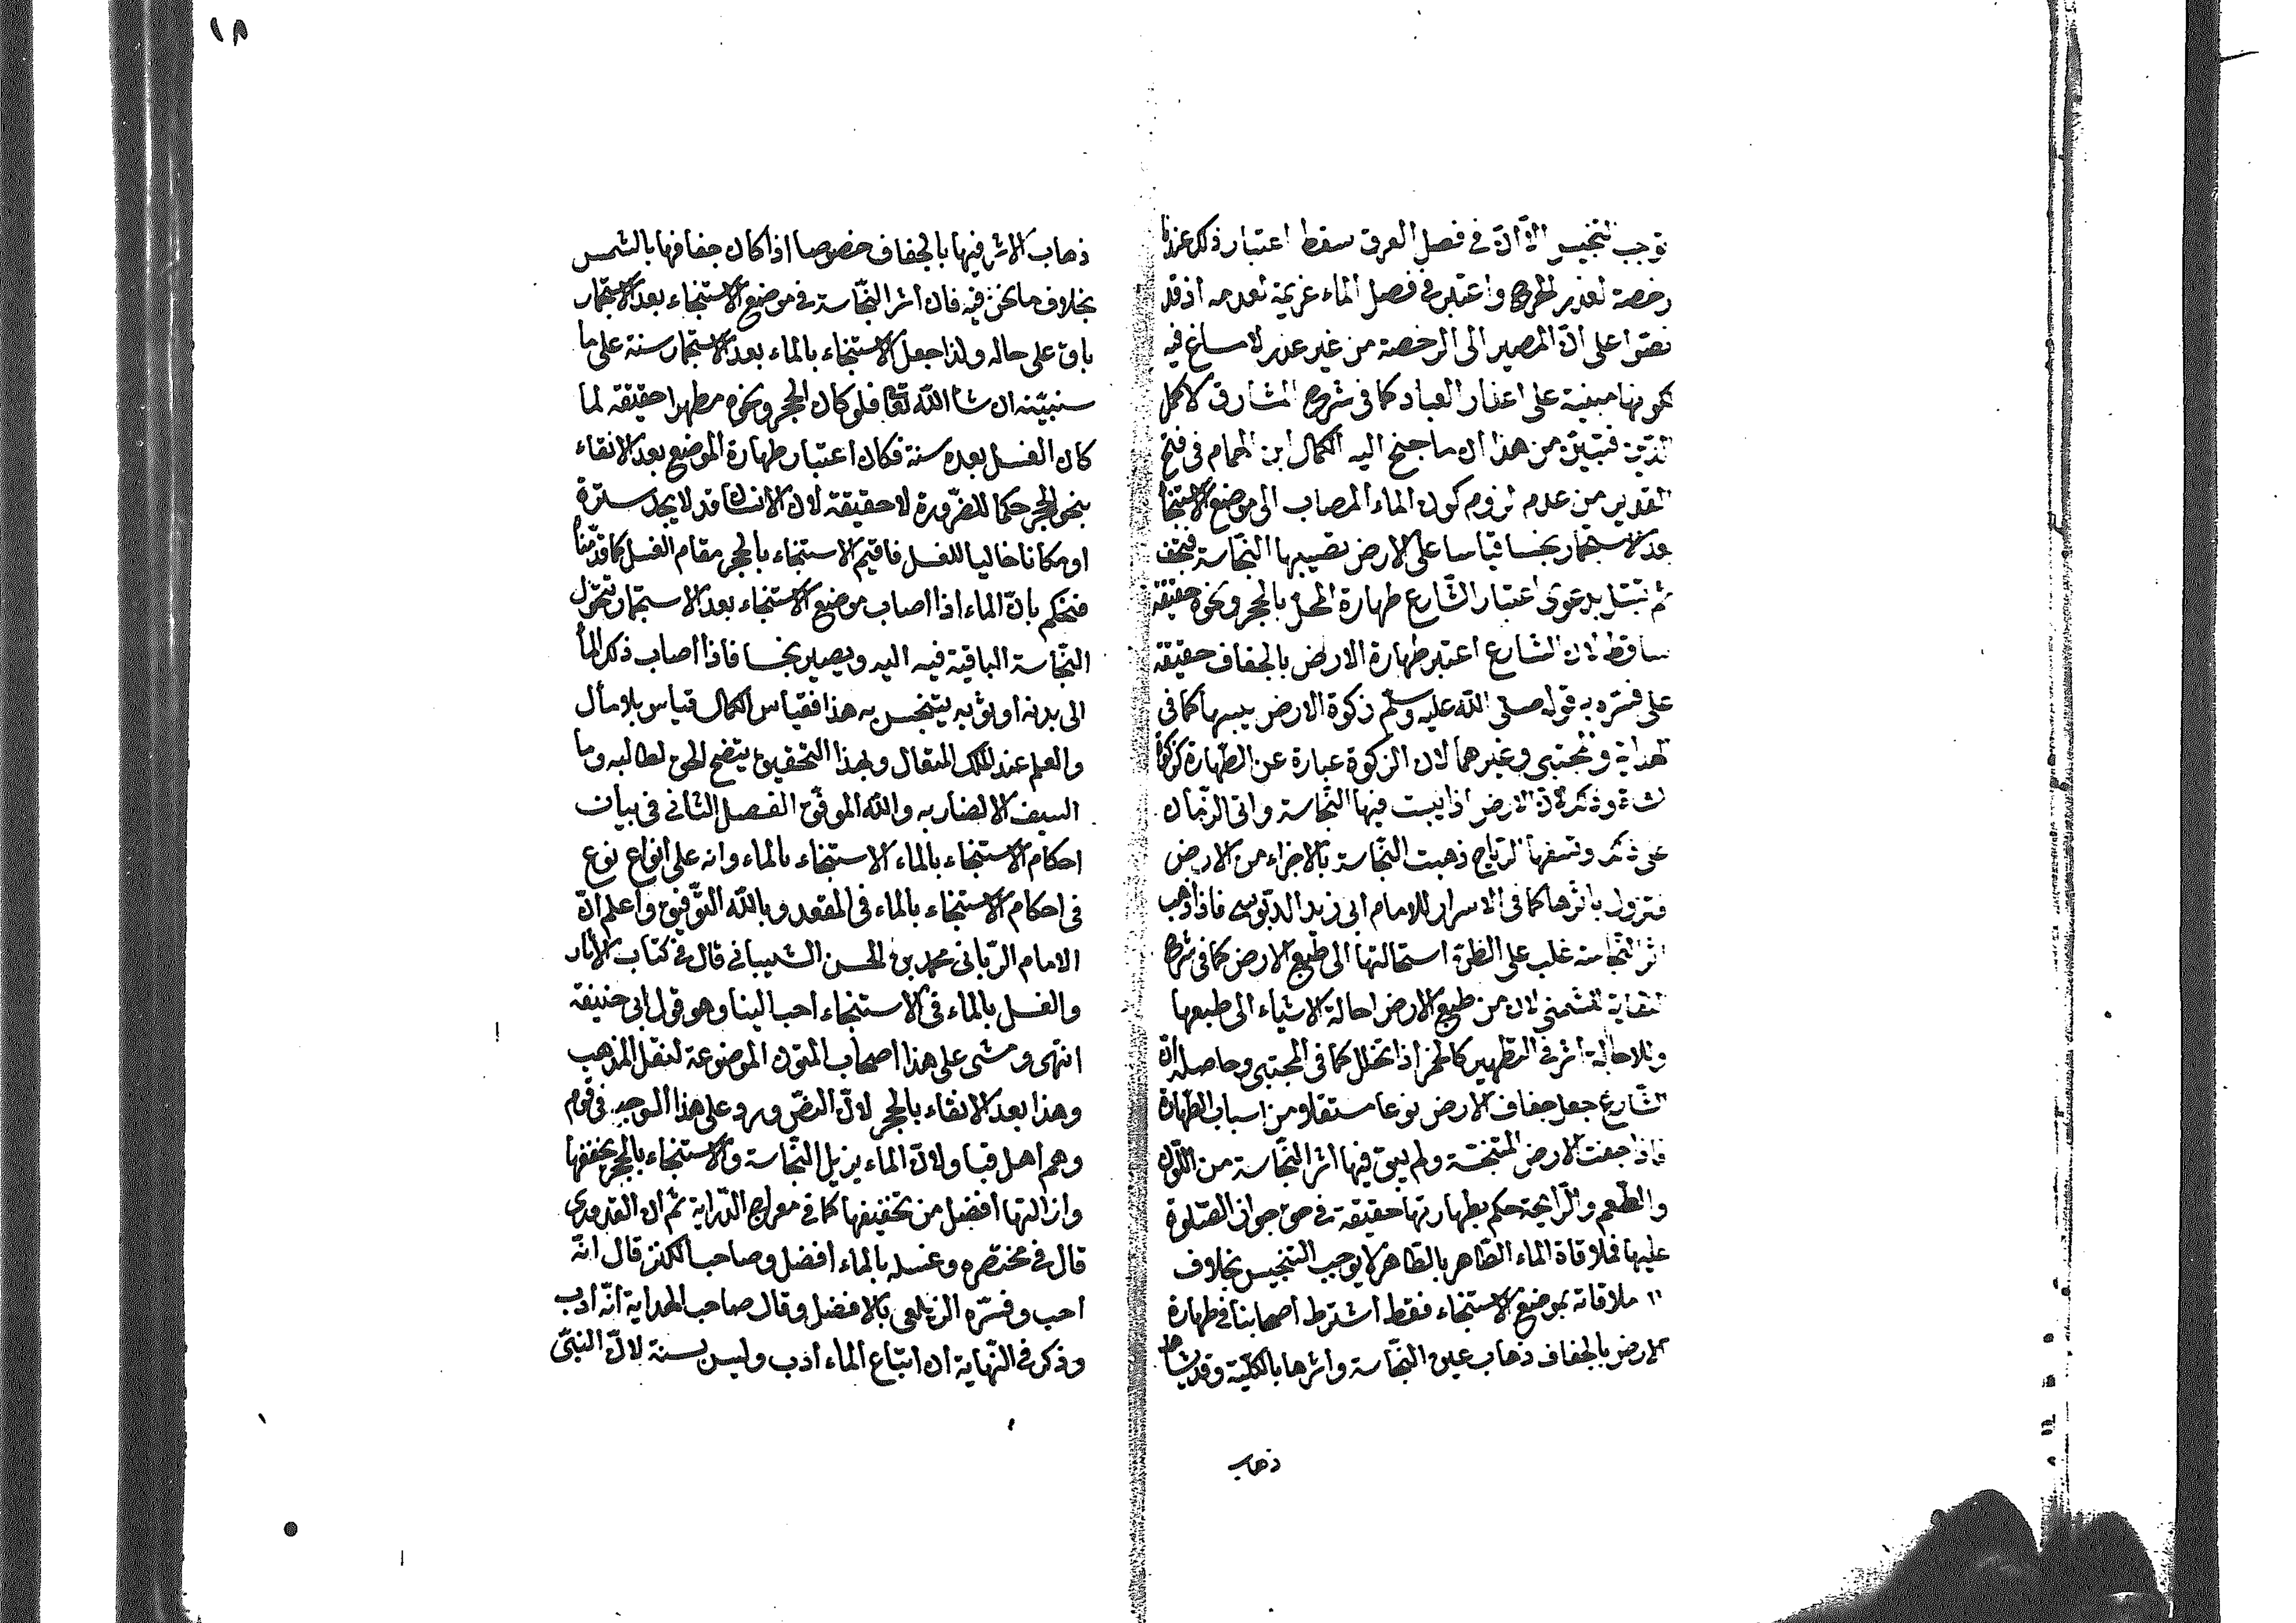 ١٨
توجب التنجيس الا ان في فصل العرق سقط اعتبار ذلك عندنا
رخصة لعذر الحرج واعتبر في فصل الماء عزيمة لعدمه اذ قد
نصوا على انّ المصير الى الرخصة من غير عذر لا مساغ فيه
لكونها مبنية على اعذار العباد كما في شرح المشارق لاكمل
الدّين فتبيّن من هذا ان ما جنح اليه الكمال ابن الهمام في فتح
القدير من عدم لزوم كون الماء المصاب الى موضع الاستنجا
بعد الاستجمار نجسا قياسا على الارض تصيبها النّجاسة فتجف
ثم تبتل بدعوى اعتبار الشّارع طهارة المحل بالحجر ونحوه حقيقة
ساقط لان الشارع اعتبر طهارة الارض بالجفاف حقيقة
على فسّره به قوله صلى الله عليه وسلم زكوة الارض يبسها كما في
الهداية والمجتبى وغيرهما لان الزكوة عبارة عن الطّهارة كزكوة
الشاة وذلك لانّ الارض اذا يبست فيها النّجاسة واتى الزّمان
على ذلك وتنسفها الرّياح ذهبت النّجاسة بالاجزاء من الارض
فتزول باثرها كما في الاسرار للامام ابي زيد الدّبّوسي فاذا ذهب
اثر النّجاسة غلب على الظّن استحالتها الى طبع الارض كما في شرح
النقاية للشمني لان من طبع الارض احالة الاشياء الى طبعها
وللاحالة اثر في التطهير كالخمر اذا تخلل كما في المجتبى وحاصله انّ
الشّارع جعل جفاف الارض نوعا مستقلا من اسباب الطّهارة
فاذا جفت الارض المتنجّسة ولم يبق فيها اثر النّجاسة من اللّون
والطّعم والرّائحة حكم بطهارتها حقيقة في حق جواز الصّلوة
عليها فملاقاة الماء الطّاهر بالطّاهر لا يوجب التنجيس بخلاف
ملاقاته بموضع الاستنجاء فقط اشترط اصحابنا في طهارة
الارض بالجفاف ذهاب عين النّجاسة واثرها بالكلّيّة وقد شاهد
ذهاب
ذهاب الاثر فيها بالجفاف خصوصا اذا كان جفافها بالشمس
بخلاف ما نحن فيه فان اثر النّجاسة في موضع الاستنجاء بعد الاستجمار
باق على حاله ولذا جعل الاستنجاء بالماء بعد الاستجمار سنة على ما
سنبيّنه ان شا الله تعا فلو كان الحجر ونحوه مطهرا حقيقة لما
كان الغسل بعده سنة فكان اعتبار طهارة الموضع بعد الانقاء
بنحو الحجر حكما للضّرورة لا حقيقة لان الانسان قد لا يجد سترة
او مكانا خاليا للغسل فاقيم الاستنجاء بالحجر مقام الغسل كما قدّمنا
فنحكم بانّ الماء اذا اصاب موضع الاستنجاء بعد الاستجمار تتحوّل
النّجاسة الباقية فيه اليه ويصير نجسا فاذا اصاب ذلك المأ
الى بدنه او ثوبه يتنجس به هذا فقياس الكمال قياس بلا مأل
والعلم عند الملك المتعال وبهذا التحقيق يتضح الحق لطالبه وما
السيف الا لضاربه والله الموفّق الفصل الثاني في بيان
احكام الاستنجاء بالماء الاستنجاء بالماء وانه على انواع نوع
في احكام الاستنجاء بالماء في المقعد وبالله التّوفيق واعلم انّ
الامام الرّباني محمد بن الحسن الشيباني قال في كتاب الآثار
والغسل بالماء في الاستنجاء احب الينا وهو قول ابي حنيفة
انتهى ومشى على هذا اصحاب المتون الموضوعة لنقل المذهب
وهذا بعد الانقاء بالحجر لانّ النصّ ورد على هذا الوجه في قوم
وهم اهل قبا ولانّ الماء يزيل النّجاسة والاستنجاء بالحجر يخففها
وازالتها افضل من تخفيفها كما في معراج الدّراية ثم ان القدوري
قال في مختصره وغسله بالماء افضل وصاحب الكنز قال انّه
احب وفسّره الزيلعي بالافضل وقال صاحب الهداية انّه ادب
وذكر في النّهاية ان اتباع الماء ادب وليس بسنة لانّ النبيّ